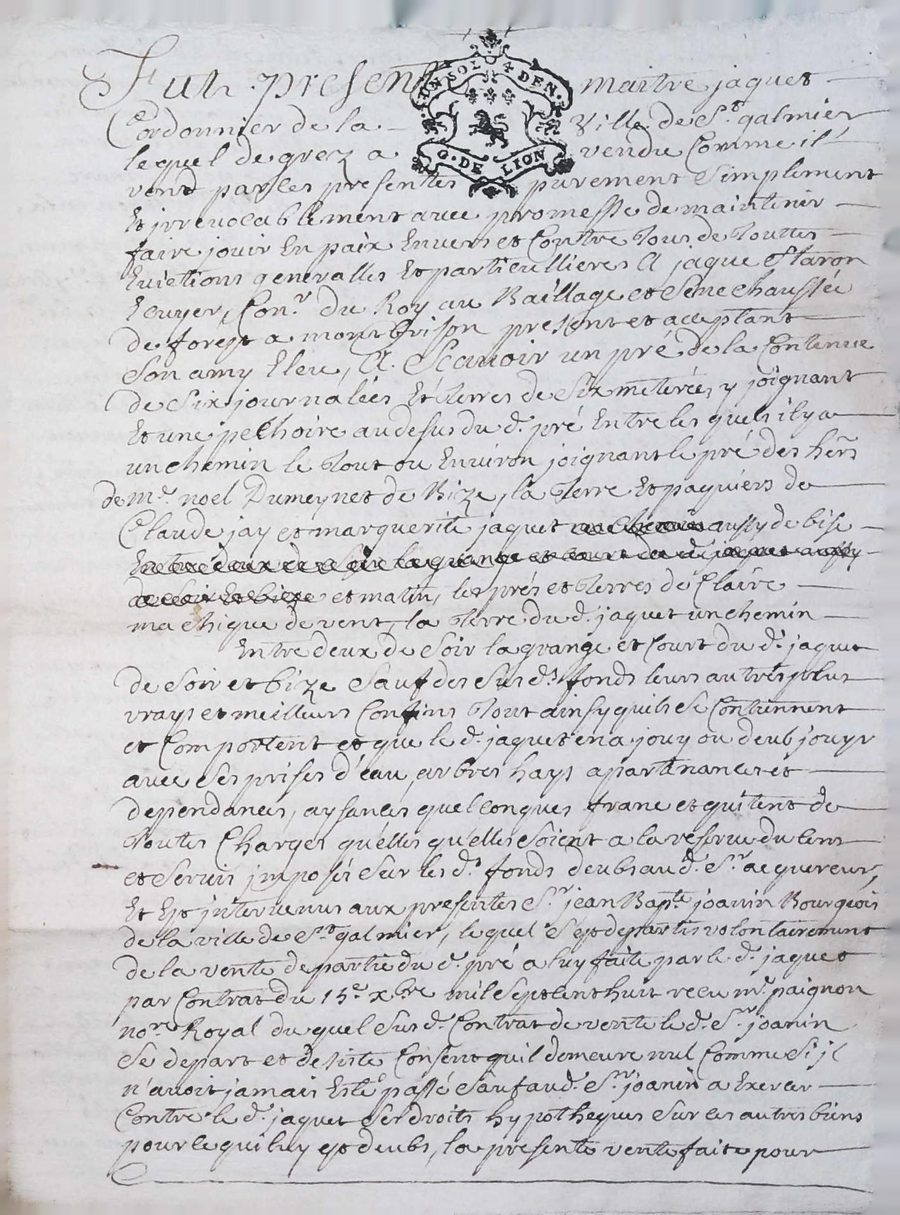 Fut present maitre jaquet
UN SOL 4 DEN.
G. DE LION
Cordonnier de la ville de St galmier
lequel de grez a vendu Comme il
vend par les presentes purement simplement
Et irrevocablement avec promesse de maintenir
faire jouir En paix Envers et Contre Tous de Touttes
Evictions generalles Et particullieres A jaque Staron
Ecuyer, Conr. du Roy au Baillage et Senechaussée
de forest a montbrison present et aceptant
Son amy Eleu, A Scavoir un pré de la Contenue
de Six journalées Et Terres de Six meterées y joignant
Et une pelhoire au desus du d. pré Entre lesquels il y a
un chemin le Tout ou Environ joignant le pré des hers
de me. noel Dumeynet de Bize, la Terre Et paquiers de
Claude jay et marguerite jaquet aussy de bise
Entre deux de soir la grange et court du d. jaquet aussy
de soir Et bize et matin, les prés et Terres de Claire
machique de vent, la Terre du d. jaquet un chemin
Entre deux de Soir la grange et Court du d. jaquet
de Soir et bize Sauf des Susds. fonds leurs autres plus
vrays et meilleurs Confins Tout ainsy quils se Contiennent
et Comportent et que le d. jaquet en a jouy ou deub jouyr
avec Ses prises d'eau, arbres hays apartenances et
dependances, aysances quelconques, franc et quitent de
Toutes Charges quelles quelles Soient a la reserve du Cens
et Servis imposés Sur les ds. fonds deubs au d. Sr. acquereur,
Et Est intervenus aux presentes Sr. jean Bapte joanin Bourgeois
de la ville de St galmier, lequel S'est departis volontairement
de la vente de partie du d. pré a luy faite par le d. jaquet
par Contrat du 15e. xbre mil Sept cent huit receu me. paignon
nore Royal du quel Susd. Contrat de vente le d. Sr. joanin
Se depart et desiste Consent quil demeure nul Comme Si jl
n'avoit jamais Esté passé Sauf au d. Sr. joanin a Exercer
Contre le d. jaquet Ses droits hypotheques Sur les autres biens
pour le qui luy est deubs, la presente vente faite pour